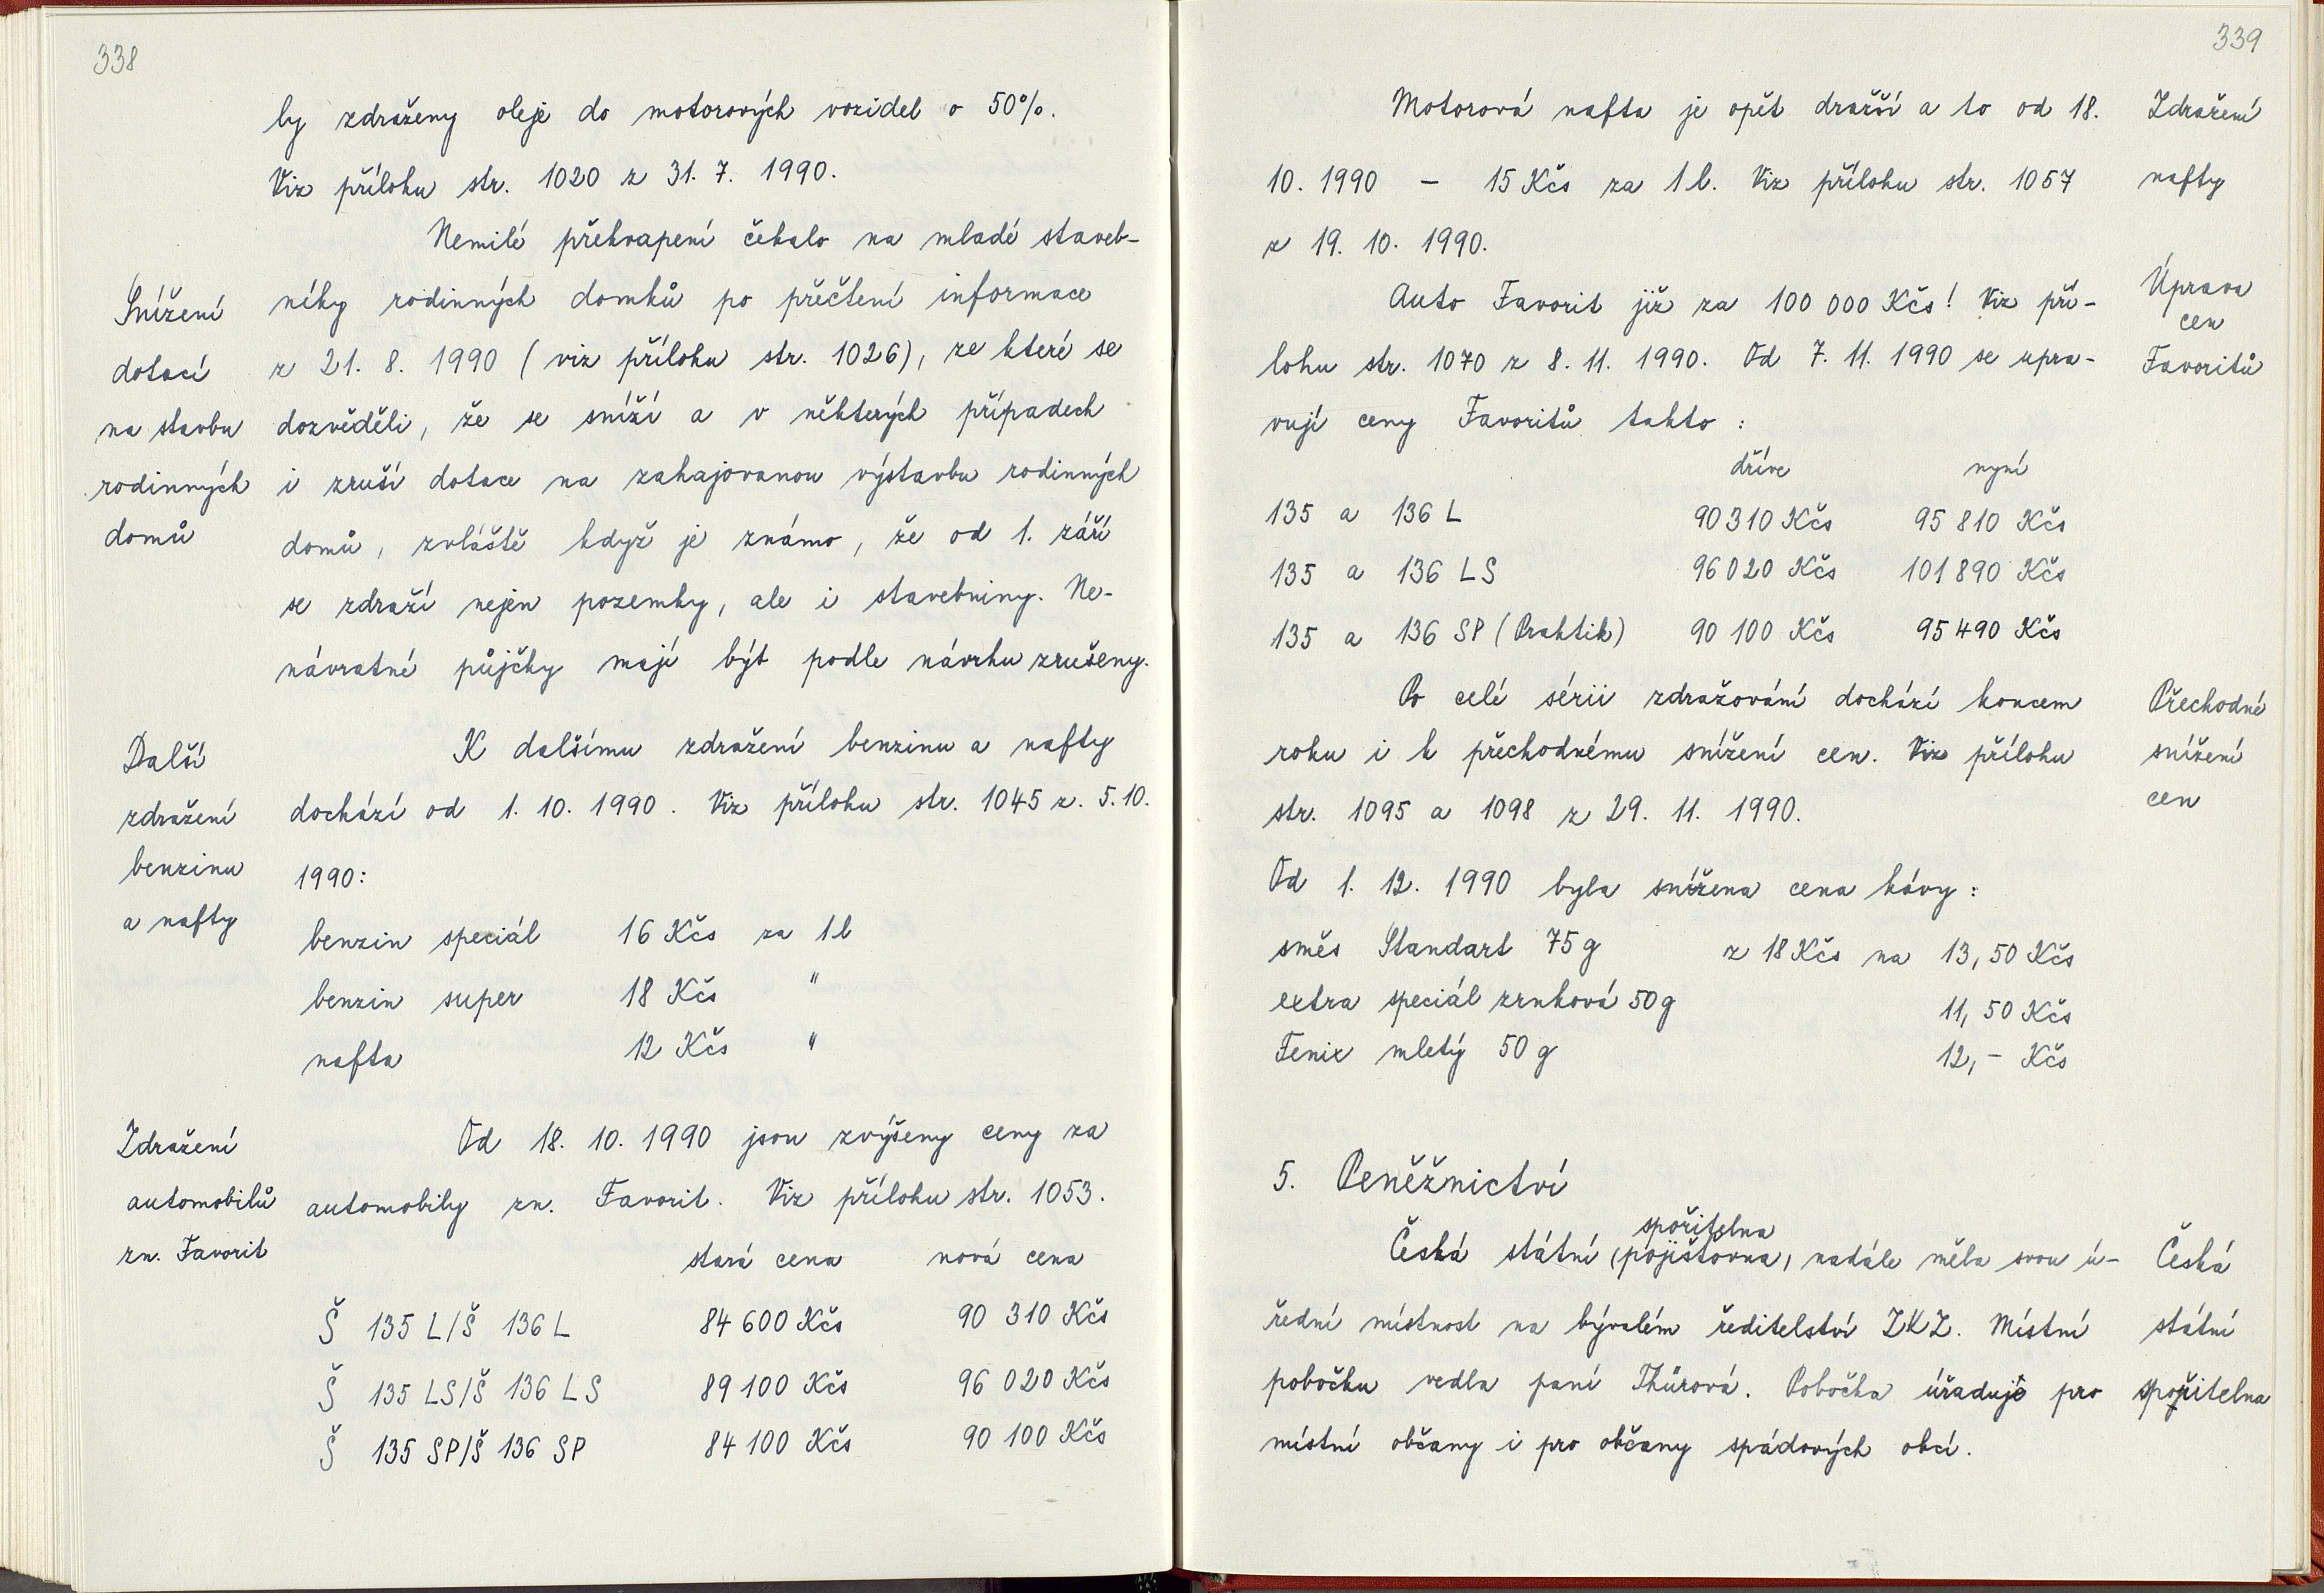 338
by zdraženy oleje do motorových vozidel o 50%.
Viz přílohu str. 1020 z 31. 7. 1990.
Nemilé překvapení čekalo na mladé staveb-
Snížení
dotací
na stavbu
rodinných
domů
níky rodinných domků po přečtení informace
z 21. 8. 1990 (viz přílohu str. 1026), ze které se
dozvěděli, že se sníží a v některých případech
i zruší dotace na zahajovanou výstavbu rodinných
domů, zvláště když je známo, že od 1. září
se zdraží nejen pozemky, ale i stavebniny. Ne-
návratné půjčky mají být podle návrhu zrušeny.
Další
zdražení
benzinu
a nafty
K dalšímu zdražení benzinu a nafty
dochází od 1. 10. 1990. Viz přílohu str. 1045 z. 5.10.
1990:
benzin speciál 16 Kčs za 1 l
benzin super 18 Kčs "
nafta 12 Kčs "
Zdražení
automobilů
zn. Favorit
Od 18. 10. 1990 jsou zvýšeny ceny za
automobily zn. Favorit. Viz přílohu str. 1053.
stará cena nová cena
Š 135 L/Š 136 L 84 600 Kčs 90 310 Kčs
Š 135 LS/Š 136 LS 89 100 Kčs 96 020 Kčs
Š 135 SP/Š 136 SP 84 100 Kčs 90 100 Kčs
339
Motorová nafta je opět dražší a to od 18.
10. 1990 – 15 Kčs za 1 l. Viz přílohu str. 1057
z 19. 10. 1990.
Zdražení
nafty
Auto Favorit již za 100 000 Kčs! Viz pří-
lohu str. 1070 z 8. 11. 1990. Od 7. 11. 1990 se upra-
vují ceny Favoritů takto:
Úprava
cen
Favoritů
dříve nyní
135 a 136 L 90 310 Kčs 95 810 Kčs
135 a 136 LS 96 020 Kčs 101 890 Kčs
135 a 136 SP (Praktik) 90 100 Kčs 95 490 Kčs
Po celé sérii zdražování dochází koncem
roku i k přechodnému snížení cen. Viz přílohu
str. 1095 a 1098 z 29. 11. 1990.
Přechodné
snížení
cen
Od 1. 12. 1990 byla snížena cena kávy:
směs Standart 75 g z 18 Kčs na 13,50 Kčs
extra speciál zrnková 50 g 11,50 Kčs
Fenix mletý 50 g 12,– Kčs
5. Peněžnictví
spořitelna
Česká státní (pojišťovna) nadále měla svou ú-
řední místnost na bývalém ředitelství ZKZ. Místní
pobočku vedla paní Thürová. Pobočka úřaduje pro
místní občany i pro občany spádových obcí.
Česká
státní
spořitelna